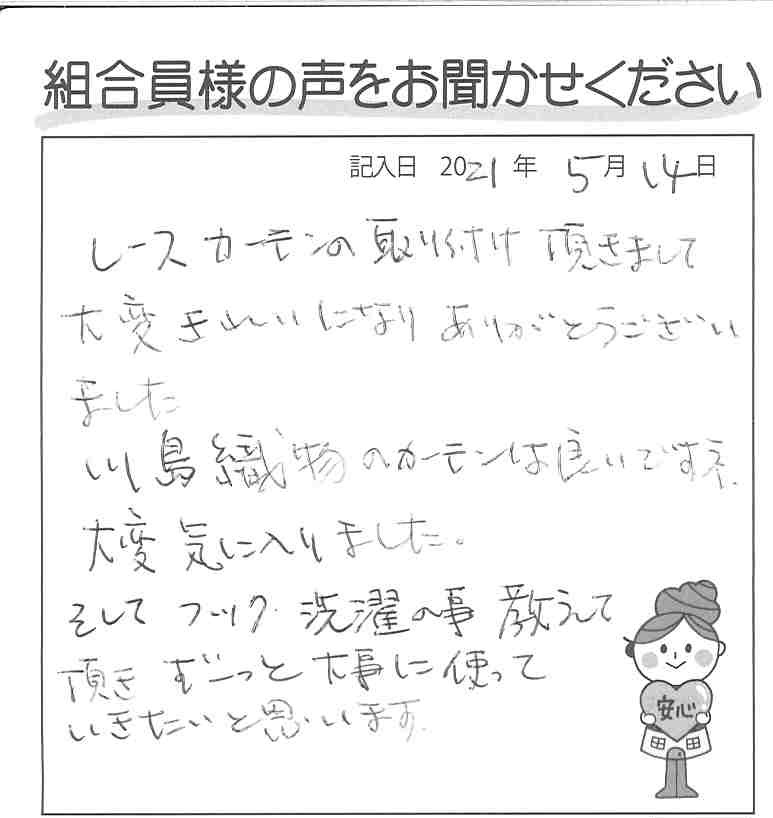 組合員様の声をお聞かせください
記入日 2021年 5月14日
レースカーテンの取り付け頂きまして
大変きれいになりありがとうございい
ました
川島織物のカーテンは良いですネ.
大変気に入りました。
そしてフック.洗濯の事教えて
頂きずーっと大事に使って
いきたいと思います.
安心